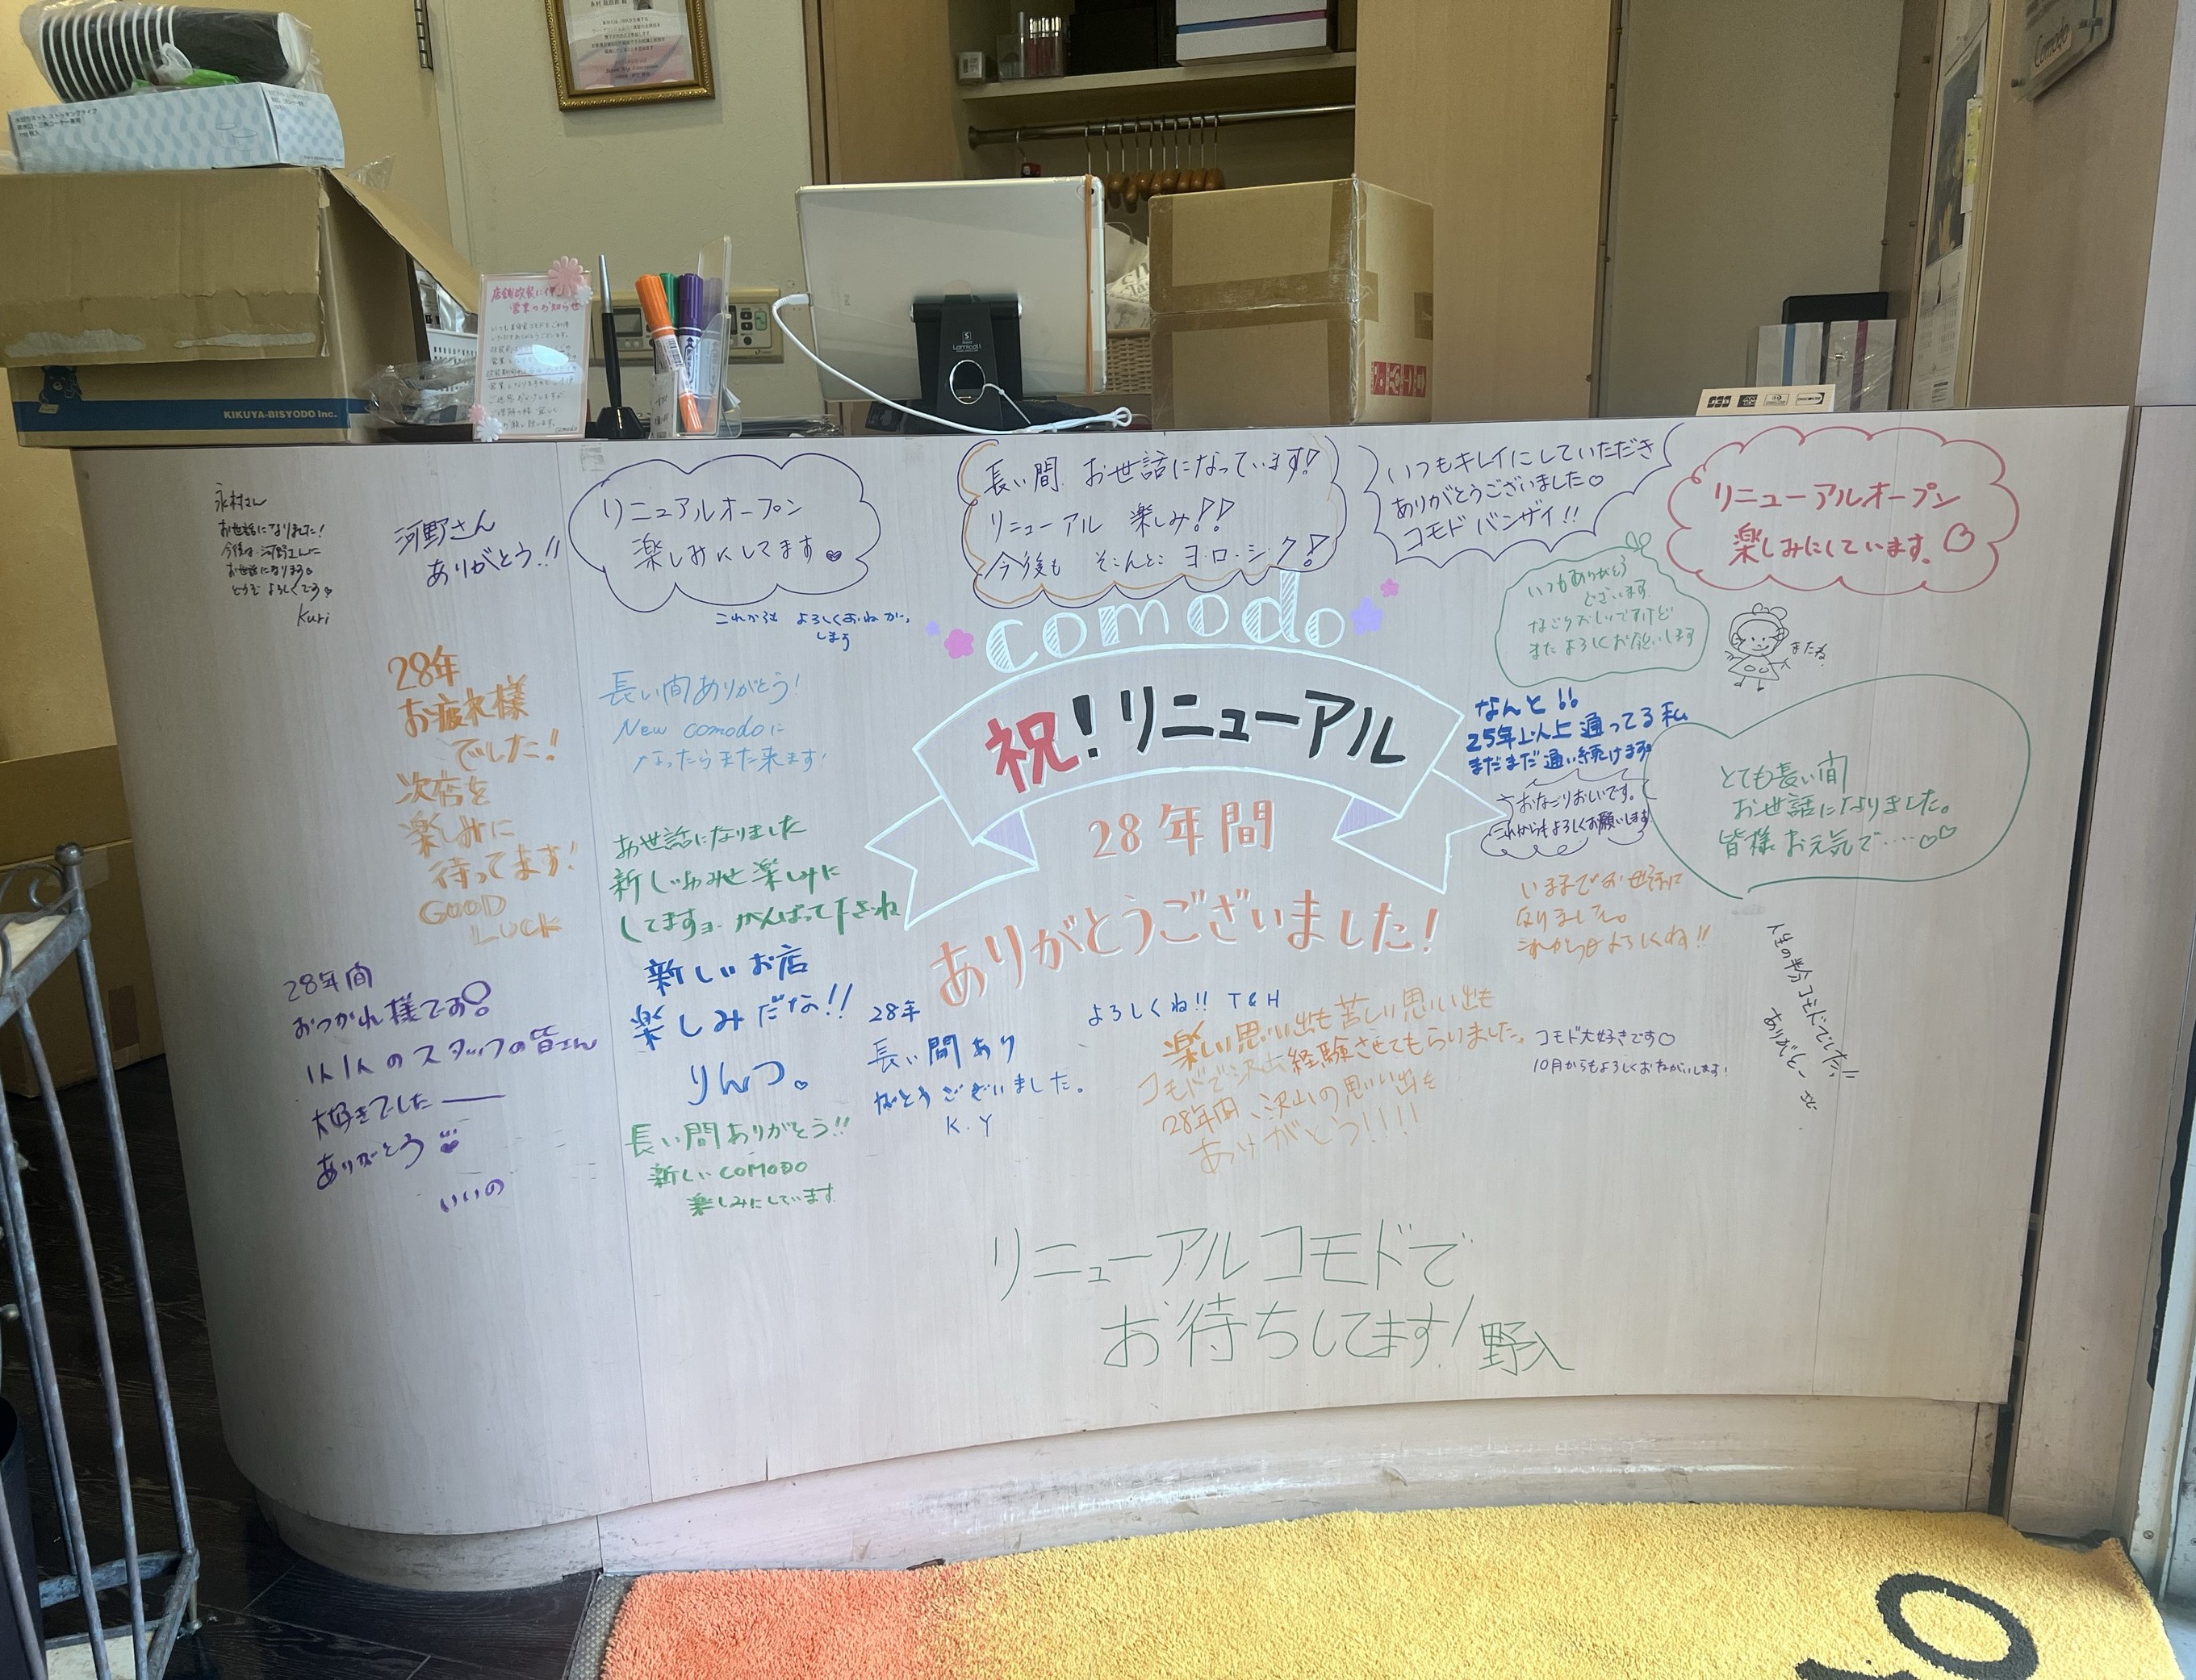 KIKUYA-BISYODO Inc.
店舗改装に伴う
営業のお知らせ
Lamicall
Comodo
永村さん
お世話になりました!
今後は河野さんに
お世話になります。
どうぞよろしくです
Kuri
河野さん
ありがとう!!
リニュアルオープン
楽しみにしてます
これからも よろしくおねがい
します
長い間 お世話になっています!
リニューアル 楽しみ!!
今後も そこんとこ ヨ・ロ・シ・ク!
いつもキレイにしていただき
ありがとうございました♡
コモド バンザイ!!
リニューアルオープン
楽しみにしています。♡
いつもありがとう
ございます
なごりおしいですけど
また よろしくお願いします
またね
comodo
祝!リニューアル
28年間
ありがとうございました!
28年
お疲れ様
でした!
次店を
楽しみに
待ってます!
GOOD
LUCK
長い間ありがとう!
New comodoに
なったらまた来ます!
お世話になりました
新しいおみせ楽しみに
してますヨ がんばって下さいね
なんと!!
25年以上通ってる私
まだまだ通い続けます
おなごりおしいです。
これからもよろしくお願いします
とても長い間
お世話になりました。
皆様お元気で‥‥♡♡
いままでお世話に
なりました。
これからもよろしくね!!
人生の半分コモドでした!!
ありがとー
28年間
おつかれ様です
1人1人のスタッフの皆さん
大好きでした――
ありがとう
いいの
新しいお店
楽しみだな!!
りんつ。
長い間ありがとう!!
新しいCOMODO
楽しみにしています
28年
長い間あり
がとうございました。
K.Y
よろしくね!! T&H
楽しい思い出も苦しい思い出も
コモドで沢山経験させてもらいました。
28年間、沢山の思い出を
ありがとう!!!!
コモド大好きです♡
10月からもよろしくおねがいします!
リニューアルコモドで
お待ちしてます!野入